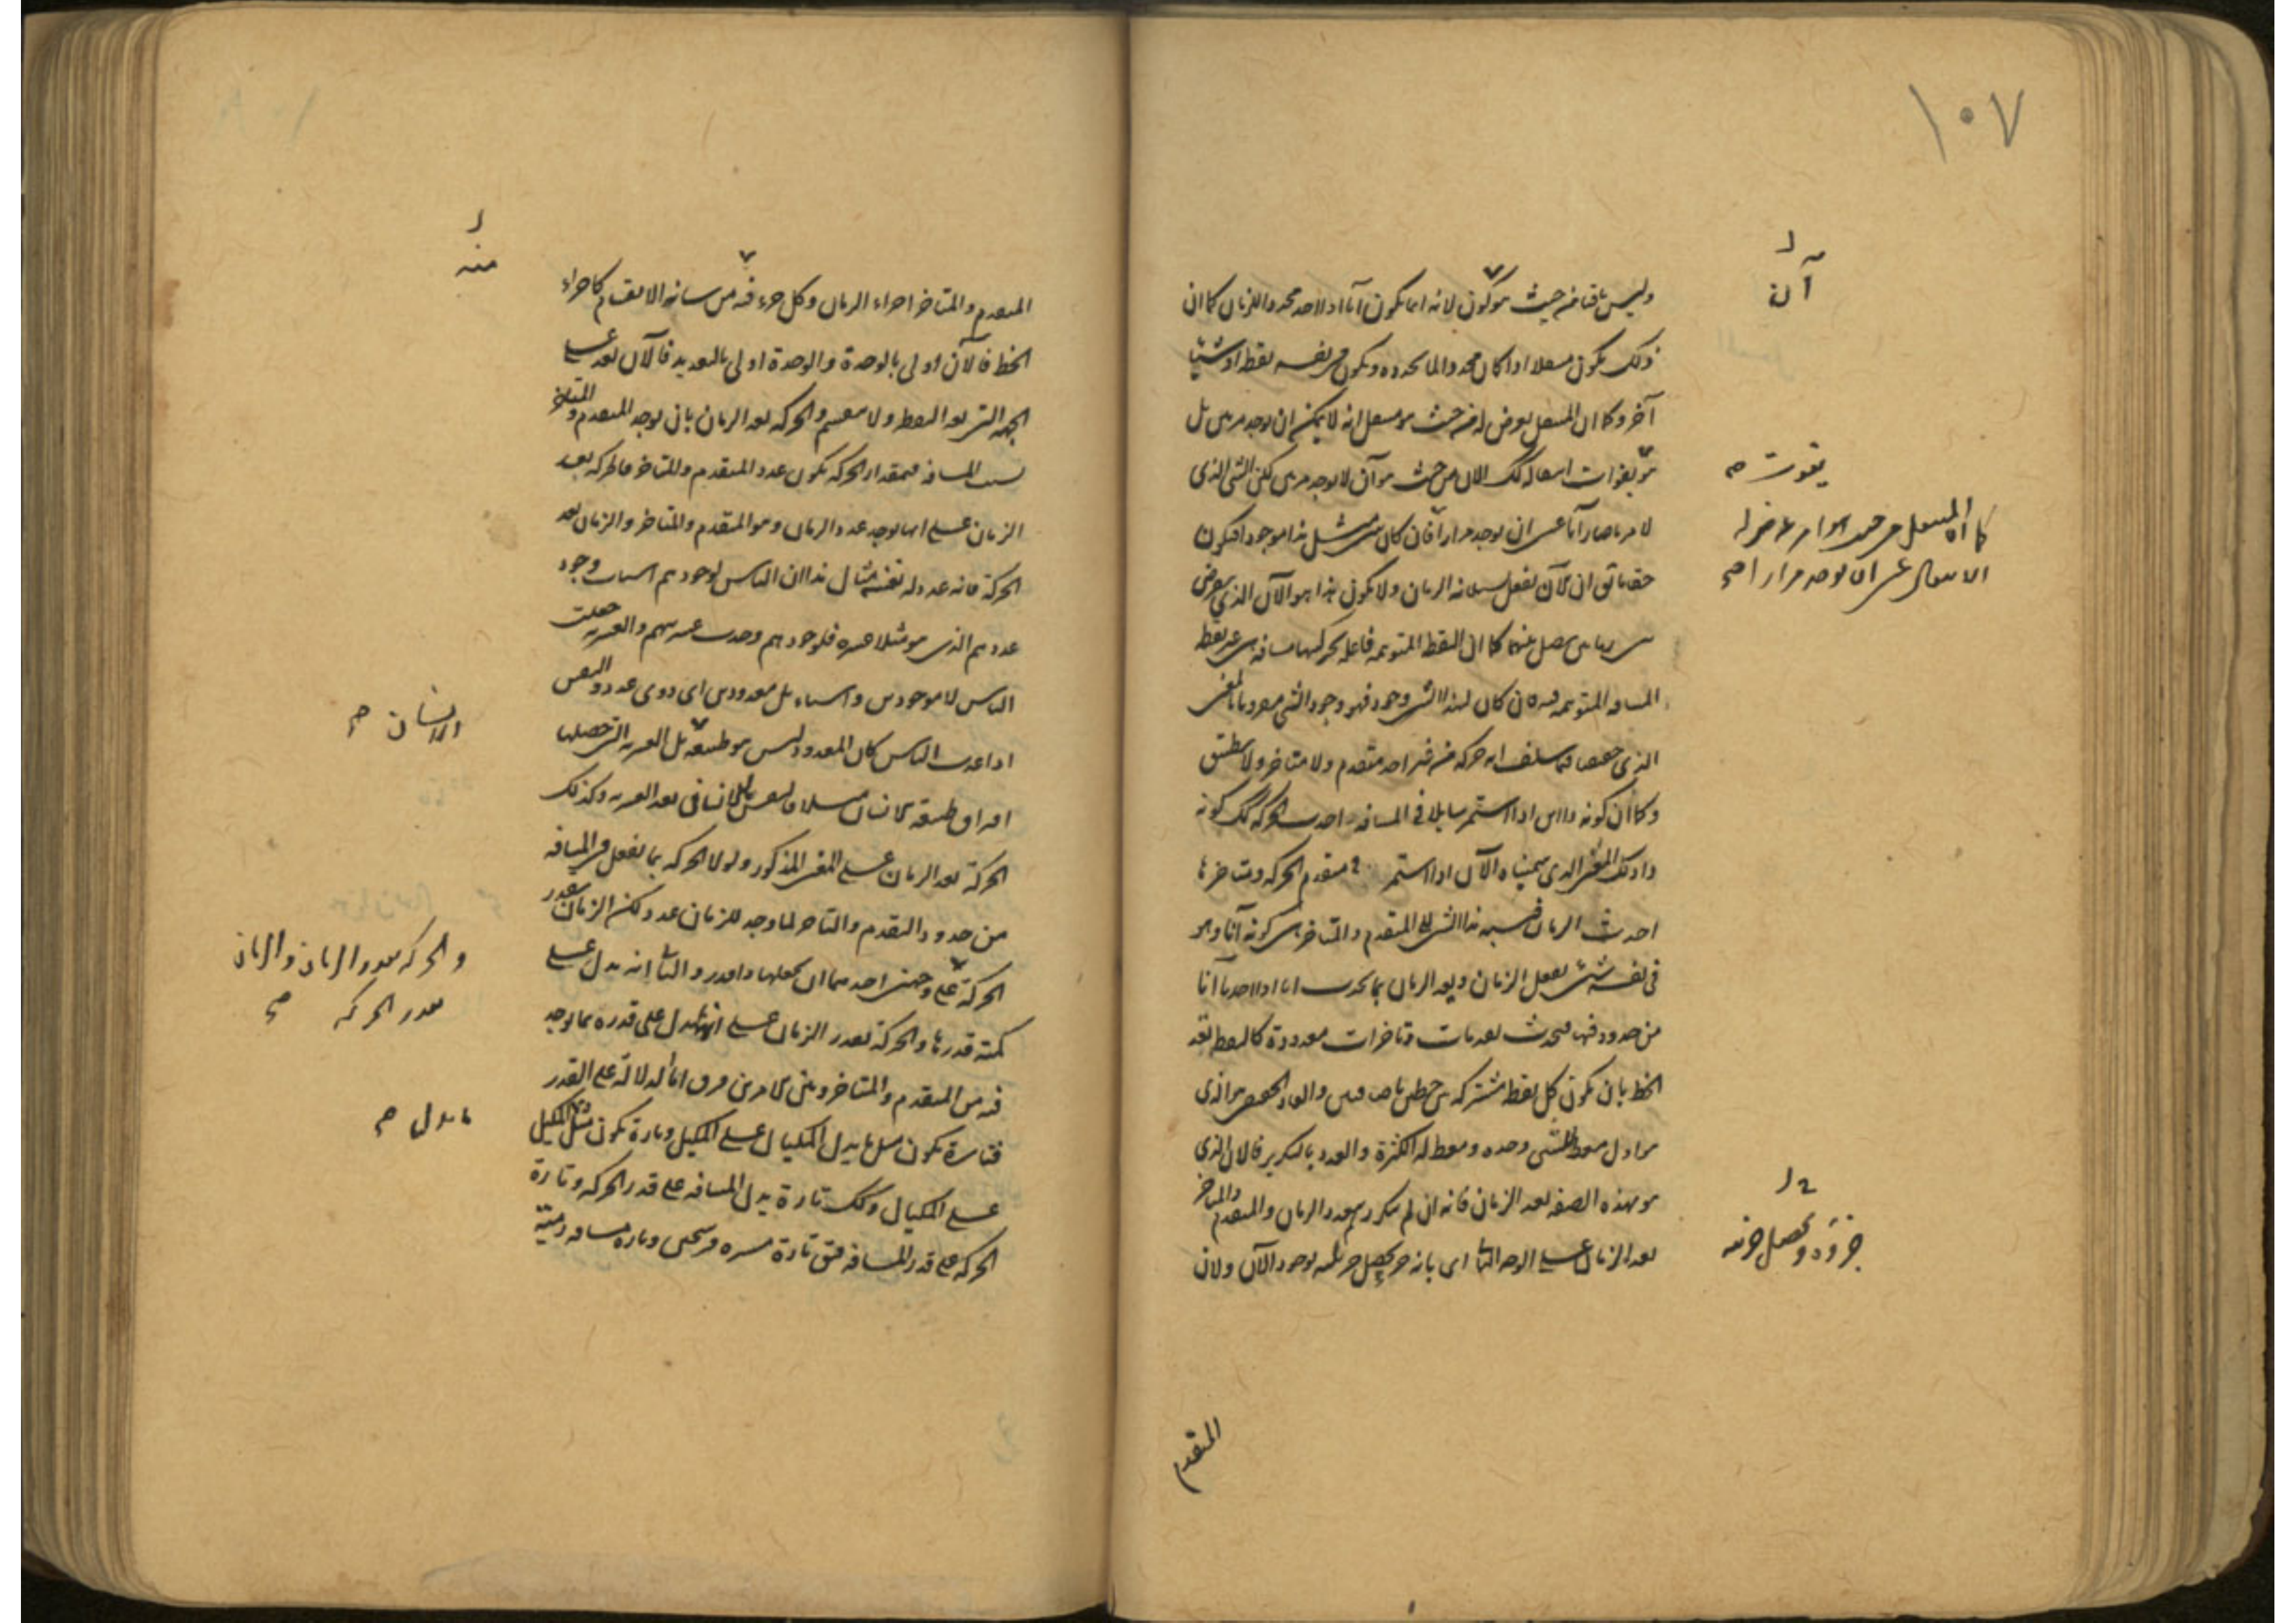 ١٠٧
آن
وليس باقيا من حيث هو كون لانه انما يكون آنا اذا اخذ محددا للزمان كما ان
ذلك يكون منتقلا اذا كان محددا لما يحدده ويكون فى نفسه نقطة او شيئا
آخر وكما ان المنتقل يعرض له من حيث هو منتقل انه لا يمكن ان يوجد مرتين بل
هو يفوت انتقاله كك الان من حيث هو آن لا يوجد مرتين لكن الشى الذى
لامر ما صار آنا عسى ان يوجد مرارا فان كان شى مثل هذا موجودا فيكون
حقا ما ق ان الآن يفعل بسيلانه الزمان ولا يكون هذا هو الآن الذى يعرض
بين زمانين يصل بينهما كما ان النقطة المتوهمة فاعلة بحركتها مسافة هى غير نقطة
المسافة المتوهمة فيه فان كان لهذا الشى وجود فهو وجود الشى مقرونا بالمعنى
الذى حققنا فيما سلف انه حركة من غير اخذ متقدم ولا متاخر ولا تطبيق
وكما ان كونه ذا اين اذا استمر سايلا فى المسافة احدث الحركة كك كونه
ذا ذلك المعنى الذى سميناه الآن اذا استمر فى متقدم الحركة ومتاخرها
احدث الزمان فنسبة هذا الشى الى المتقدم والمتاخر هى كونه آنا وهو
فى نفسه شى يفعل الزمان ويعد الزمان بما يحدث اذا اخذنا آنا
من حدود فيها فيحدث تقدمات وتاخرات معدودة كالنقطة تعد
الخط بان تكون كل نقطة مشتركة بين خطين باضافتين والعاد الحقيقى هو الذى
هو اول معط للشى وحده ومعط له الكثرة والعدد بالتكرير فالان الذى
هو بهذه الصفة يعد الزمان فانه ان لم يتكرر لم يعدد الزمان والمتقدم والمتاخر
يعد الزمان على الوجه الثانى اى بانه جزء يحصل جزئيته بوجود الآن ولان
يفوت صح
كما ان المنتقل من حيث هو امر عرض له
الانتقال عسى ان يوجد مرارا صح
جزؤه ويحصل جزئيته
المتقدم
منه
المتقدم والمتاخر اجزاء الزمان وكل جزء فيه من شانه الانقسام كاجزاء
الخط فالآن اولى بالوحدة والوحدة اولى بالتعديد فالآن يعد على
الجهة التى تعد النقطة ولا ينقسم والحركة تعد الزمان بان توجد المتقدم والمتاخر
بسبب المسافة فبمقدار الحركة يكون عدد المتقدم والمتاخر فالحركة تعد
الزمان على انها توجد عدد الزمان وهو المتقدم والمتاخر والزمان يعد
الحركة فانه عدد له نفسه مثال هذا ان الناس لوجودهم اسباب وجود
عددهم الذى هو مثلا عشرة فلوجودهم وجدت عشريتهم والعشرية جعلت
الناس لا موجودين واشياء بل معدودين اى ذوى عدد والنفس
اذا عدت الناس كان المعدود ليس هو طبيعة بل العشرية التى حصلها
افراق طبيعة الانسان مثلا فالنفس بالانسانى تعد العشرية وكذلك
الحركة تعد الزمان على المعنى المذكور ولولا الحركة بما تفعل فى المسافة
من حدود التقدم والتاخر لما وجد للزمان عدد لكن الزمان يقدر
الحركة على وجهين احدهما ان يجعلها ذا قدر والثانى انه يدل على
كمية قدرها والحركة تقدر الزمان على انها تدل على قدره بما يوجد
فيه من المتقدم والمتاخر وبين الامرين فرق اما الدلالة على القدر
فتارة يكون مثل ما يدل المكيال على المكيل وتارة يكون مثل المكيل
على المكيال وكك تارة يدل المسافة على قدر الحركة وتارة
الحركة على قدر المسافة فيق تارة مسيرة فرسخين وتارة مسافة رمية
الانسان صح
والحركة يقدر الزمان والزمان
يقدر الحركة صح
ما يدل صح